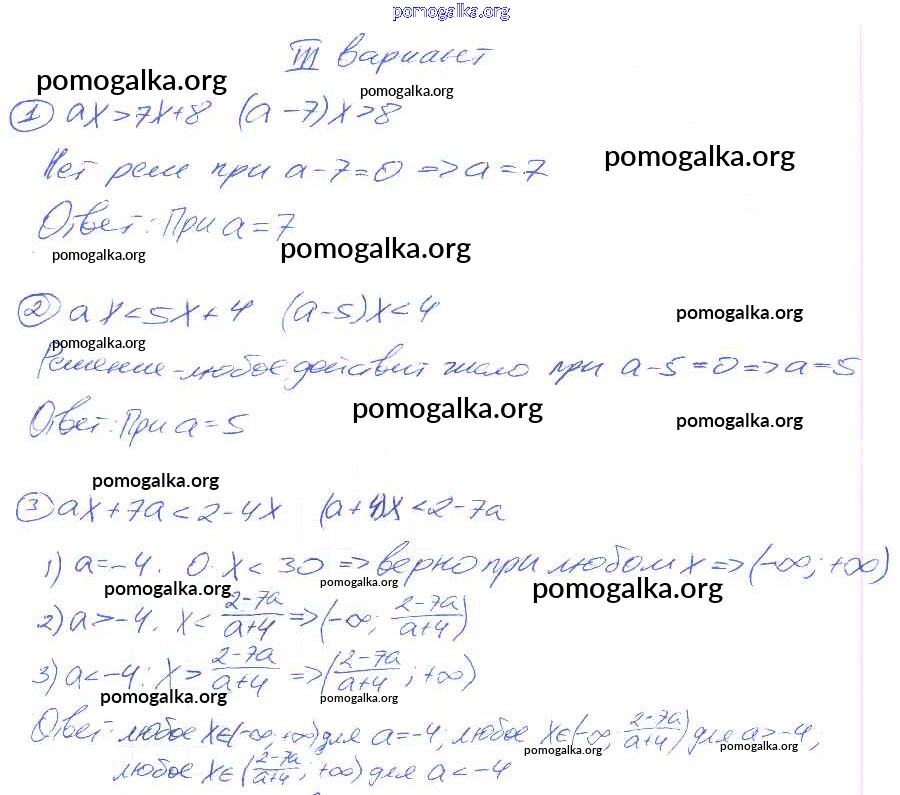 pomogalka.org
III вариант
pomogalka.org pomogalka.org
1 ax>7x+8 (a-7)x>8
pomogalka.org
Нет реш при a-7=0 => a=7
Ответ: При a=7
pomogalka.org pomogalka.org
2 ax<5x+4 (a-5)x<4
pomogalka.org
pomogalka.org
Решение - любое действит число при a-5=0=>a=5
pomogalka.org
Ответ: При a=5
pomogalka.org
pomogalka.org
3 ax+7a<2-4x (a+4)x<2-7a
1) a=-4. 0·x<30 => верно при любом x => (-∞; +∞)
pomogalka.org pomogalka.org pomogalka.org
2) a>-4. x< 2-7a/a+4 => (-∞; 2-7a/a+4)
3) a<-4: x> 2-7a/a+4 => (2-7a/a+4; +∞)
pomogalka.org pomogalka.org
Ответ: любое x∈(-∞; +∞) для a=-4; любое x∈(-∞; 2-7a/a+4) для a>-4;
pomogalka.org pomogalka.org
любое x∈(2-7a/a+4; +∞) для a<-4